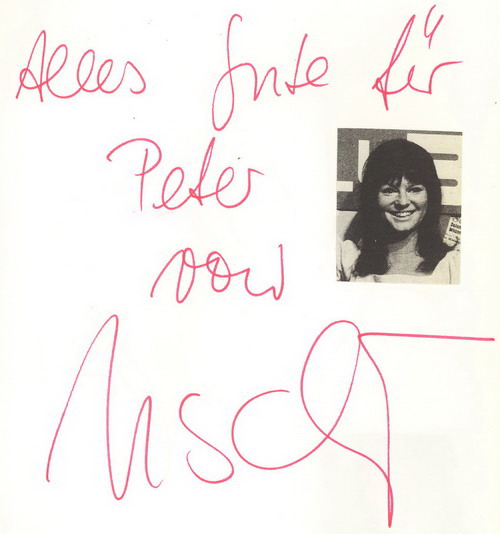 Alles Gute für
Peter
von
Uschi